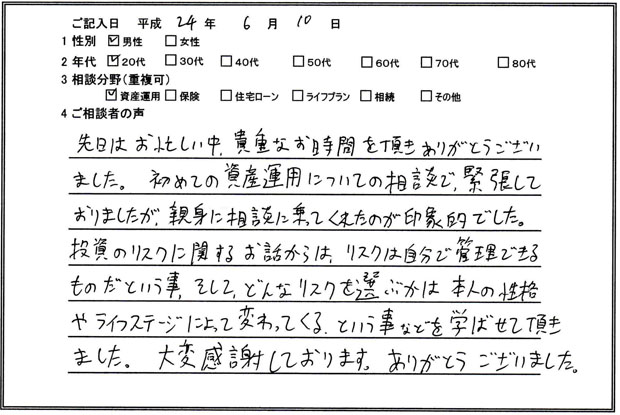 ご記入日 平成 24 年 6 月 10 日
1 性別 ☑男性 □女性
2 年代 ☑20代 □30代 □40代 □50代 □60代 □70代 □80代
3 相談分野(重複可)
☑資産運用 □保険 □住宅ローン □ライフプラン □相続 □その他
4 ご相談者の声
先日はお忙しい中、貴重なお時間を頂きありがとうござい
ました。初めての資産運用についての相談で、緊張して
おりましたが、親身に相談に乗ってくれたのが印象的でした。
投資のリスクに関するお話からは、リスクは自分で管理できる
ものだという事、そして、どんなリスクを選ぶかは本人の性格
やライフステージによって変わってくる、という事などを学ばせて頂き
ました。大変感謝しております。ありがとうございました。